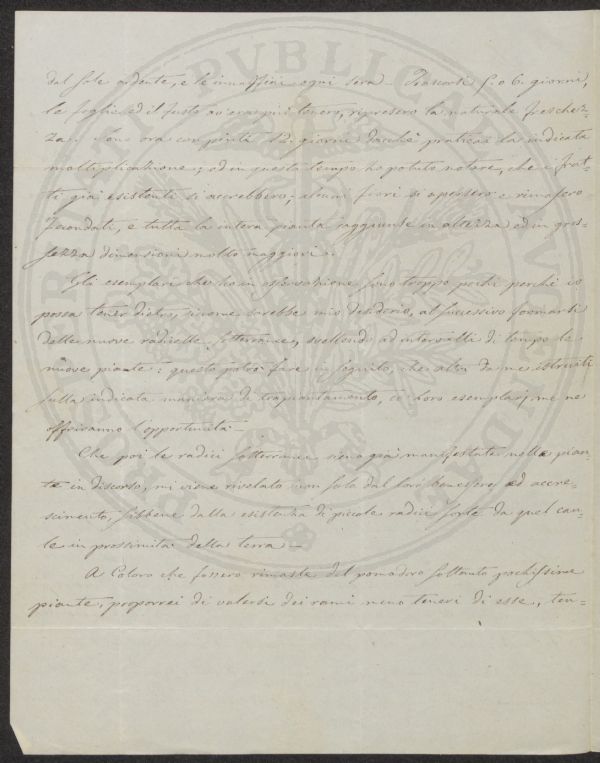 dal sole ardente, e le innaffiai ogni sera. Trascorsi 5. o 6. giorni,
le foglie ed il fusto ov'era più tenero, ripresero la naturale freschez-
za. Son ora compiuti 12. giorni dacchè praticai la indicata
moltiplicazione; ed in questo tempo ho potuto notare, che i frut-
ti già esistenti si accrebbero; alcuni fiori si apersero e rimasero
fecondati, e tutta la intera pianta raggiunse in altezza ed in gros-
sezza dimensioni molto maggiori.
Gli esemplari che ho in osservazione sono troppo pochi perchè io
possa tener dietro, siccome sarebbe mio desiderio, al successivo formarsi
delle nuove radicelle sotterranee, svellendo ad intervalli di tempo le
nuove piante: questo potrò fare in seguito, che altri da me istruiti
sulla indicata maniera di trapiantamento, co' loro esemplari, me ne
offriranno l'opportunità.
Che poi le radici sotterranee sieno già manifestate nelle pian-
te in discorso, mi viene rivelato non solo dal loro benessere ed accre-
scimento, sibbene dalla esistenza di piccole radici sorte da quel cau-
le in prossimità della terra.
A Coloro che fossero rimaste del pomodoro soltanto pochissime
piante, proporrei di valersi dei rami meno teneri di esse, ten-